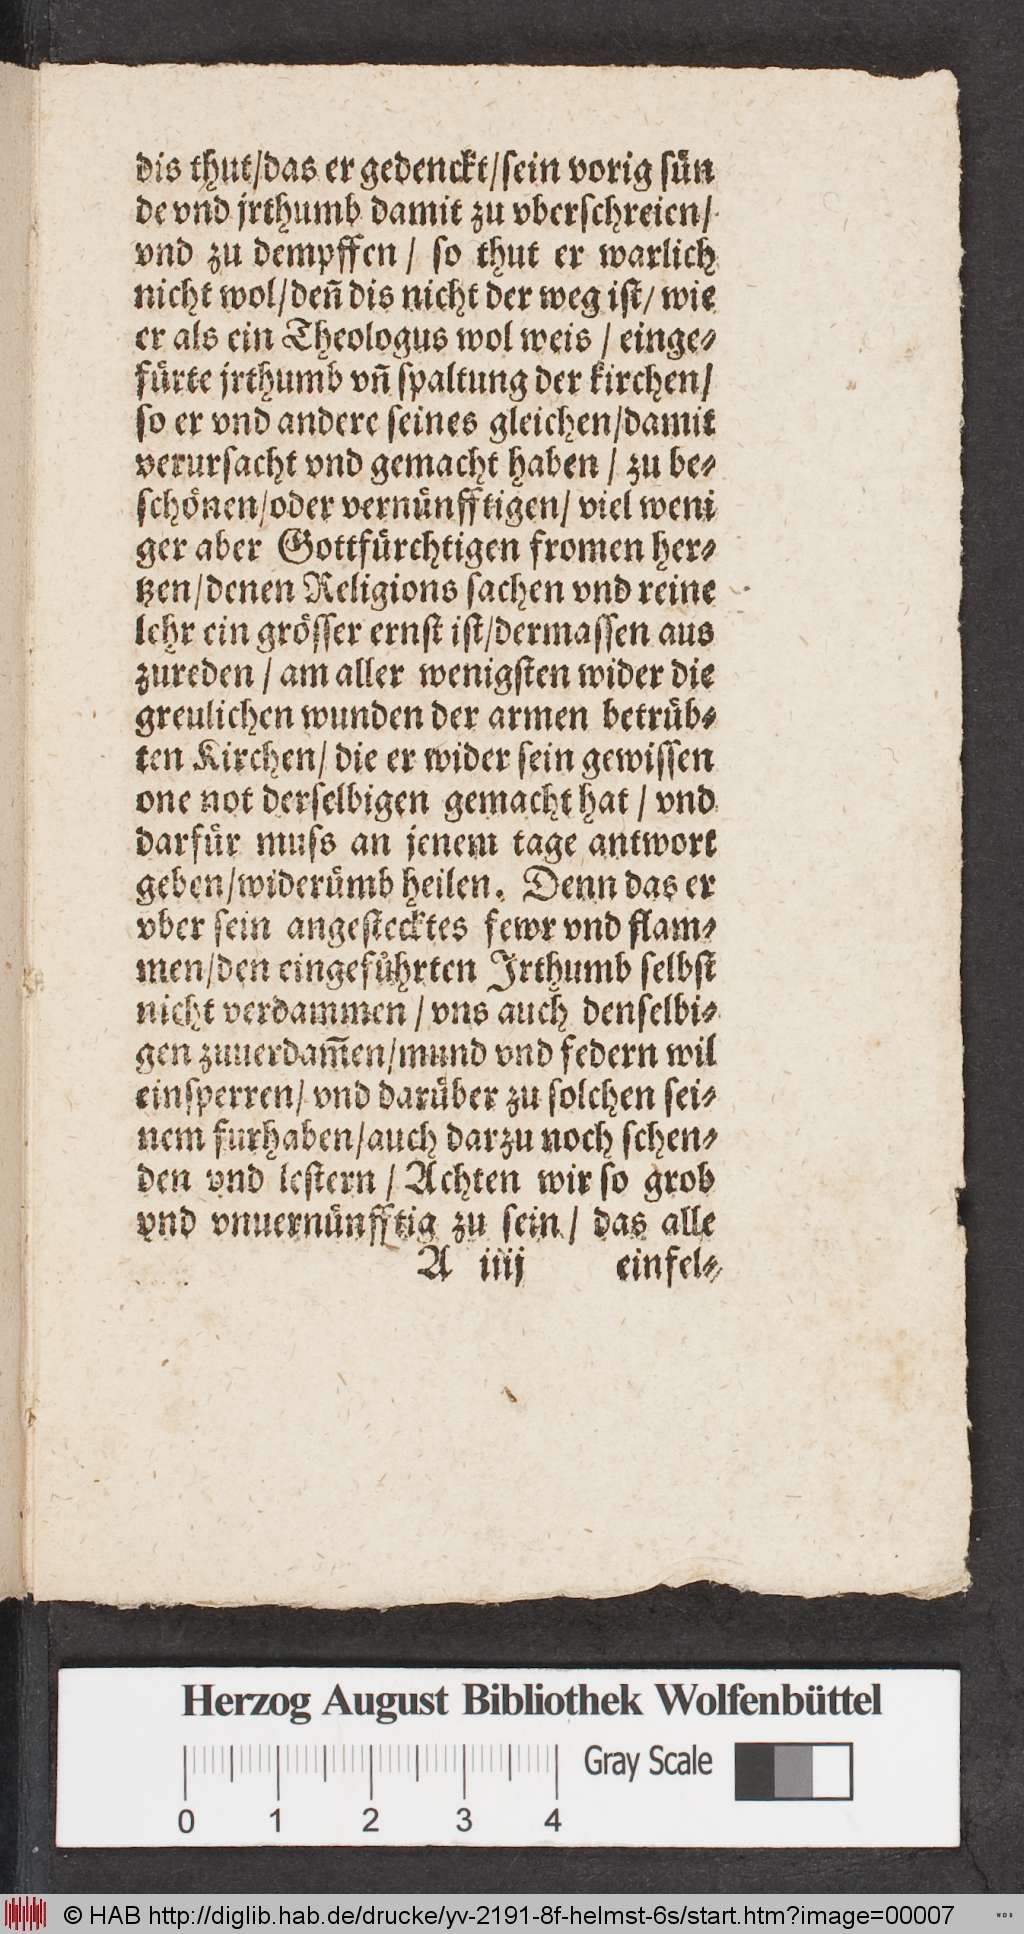 dis thut/das er gedenckt/sein vorig sün
de vnd jrthumb damit zu vberschreien/
vnd zu dempffen / so thut er warlich
nicht wol/deñ dis nicht der weg ist/ wie
er als ein Theologus wol weis / einge-
fürte jrthumb vñ spaltung der kirchen/
so er vnd andere seines gleichen/damit
verursacht vnd gemacht haben / zu be-
schönen/oder vernünfftigen/ viel weni
ger aber Gottfürchtigen fromen her-
tzen/denen Religions sachen vnd reine
lehr ein grösser ernst ist/dermassen aus
zureden / am aller wenigsten wider die
greulichen wunden der armen betrüb-
ten Kirchen/ die er wider sein gewissen
one not derselbigen gemacht hat / vnd
darfür muss an jenem tage antwort
geben/widerümb heilen. Denn das er
vber sein angestecktes fewr vnd flam-
men/den eingeführten Jrthumb selbst
nicht verdammen / vns auch denselbi-
gen zuuerdam̃en/mund vnd federn wil
einsperren/ vnd darüber zu solchen sei-
nem furhaben/auch darzu noch schen-
den vnd lestern / Achten wir so grob
vnd vnuernünfftig zu sein / das alle
A iiij einfel-
Herzog August Bibliothek Wolfenbüttel
Gray Scale
0 1 2 3 4
© HAB http://diglib.hab.de/drucke/yv-2191-8f-helmst-6s/start.htm?image=00007